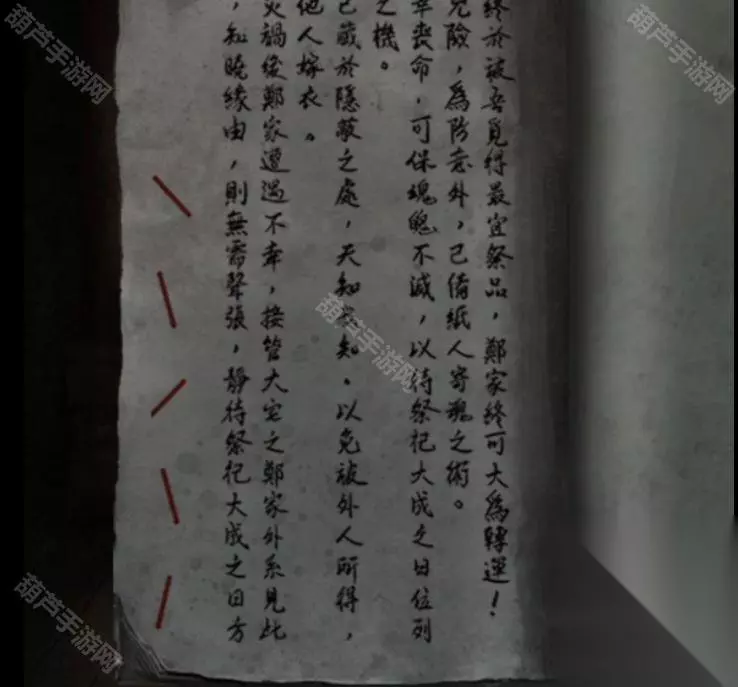 終於被吾覓得最宜祭品，鄭家終可大為轉運！
險，為防意外，已備紙人寄魂之術。
喪命，可保魂魄不滅，以待祭祀大成之日位列
之機。
藏於隱蔽之處，天知知。以免被外人所得，
他人嫁衣。
禍後鄭家遭遇不幸，接管大宅之鄭家外系見此
，知曉緣由，則無需聲張，靜待祭祀大成之日方
葫芦手游网
葫芦手游网
葫芦手游网
葫芦手游网
葫芦手游网